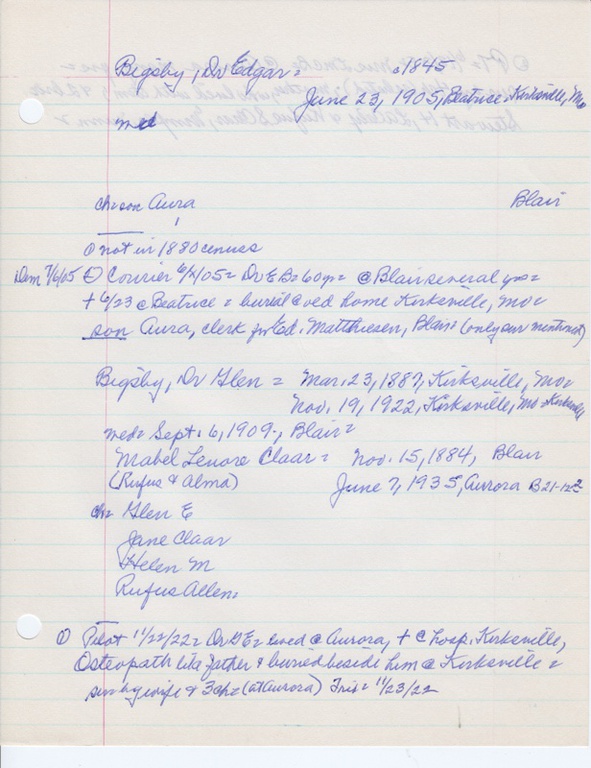 Bigsby, Dr Edgar = c1845
June 23, 1905, Beatrice = Kirksville, Mo
med
ch = son Aura Blair
① not in 1880 census
Dem 7/6/05 ① Courier 6/ /05 = Dr E B = 60y = @ Blair several yrs =
+ 6/23 @ Beatrice = burial @ old home Kirksville, Mo =
son Aura, clerk for Ed. Matthiesen, Blair = (only sur mentioned)
Bigsby, Dr Glen = Mar. 23, 1887, Kirksville, Mo =
Nov. 19, 1922, Kirksville, Mo = Kirksville
med = Sept. 6, 1909, Blair =
Mabel Lenore Claar = Nov. 15, 1884, Blair
(Rufus & Alma) June 7, 1935, Aurora B21-12-2
ch = Glen E
Jane Claar
Helen M
Rufus Allen =
① Pilot 11/22/22 = Dr GE = lived @ Aurora, + @ hosp. Kirksville,
Osteopath like father & buried beside him @ Kirksville =
sur by wife & 3 ch = (at Aurora) Trib = 11/23/22